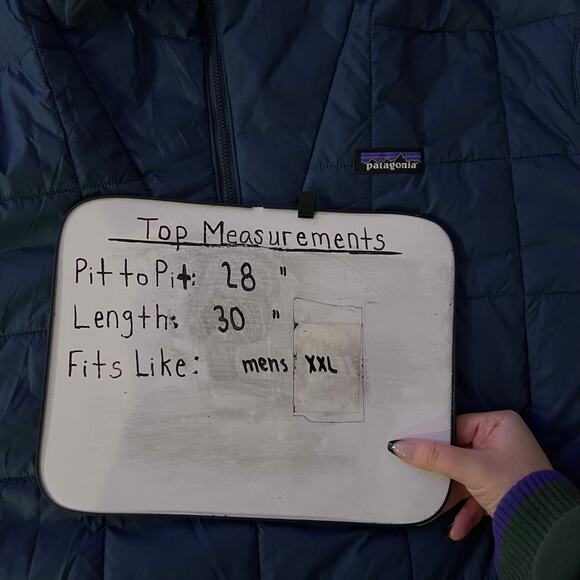 patagonia
Top Measurements
Pit to Pit: 28 "
Length: 30 "
Fits Like: mens XXL